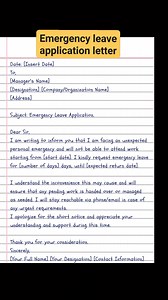 Emergency leave
application letter
Date: [Insert Date]
To,
[Manager's Name]
[Designation] [Company/Organization Name]
[Address]
Subject: Emergency Leave Application.
Dear Sir,
I am writing to inform you that I am facing an unexpected
personal emergency and will not be able to attend work
starting from [start date]. I kindly request emergency leave
for [number of days] days, until [expected return date].
I understand the inconvenience this may cause and will
ensure that any pending work is handed over or managed
as needed. I will stay reachable via phone/email in case of
any urgent requirements.
I apologize for the short notice and appreciate your
understanding and support during this time.
Thank you for your consideration.
Sincerely,
[Your Full Name] [Your Designation] [Contact Information]